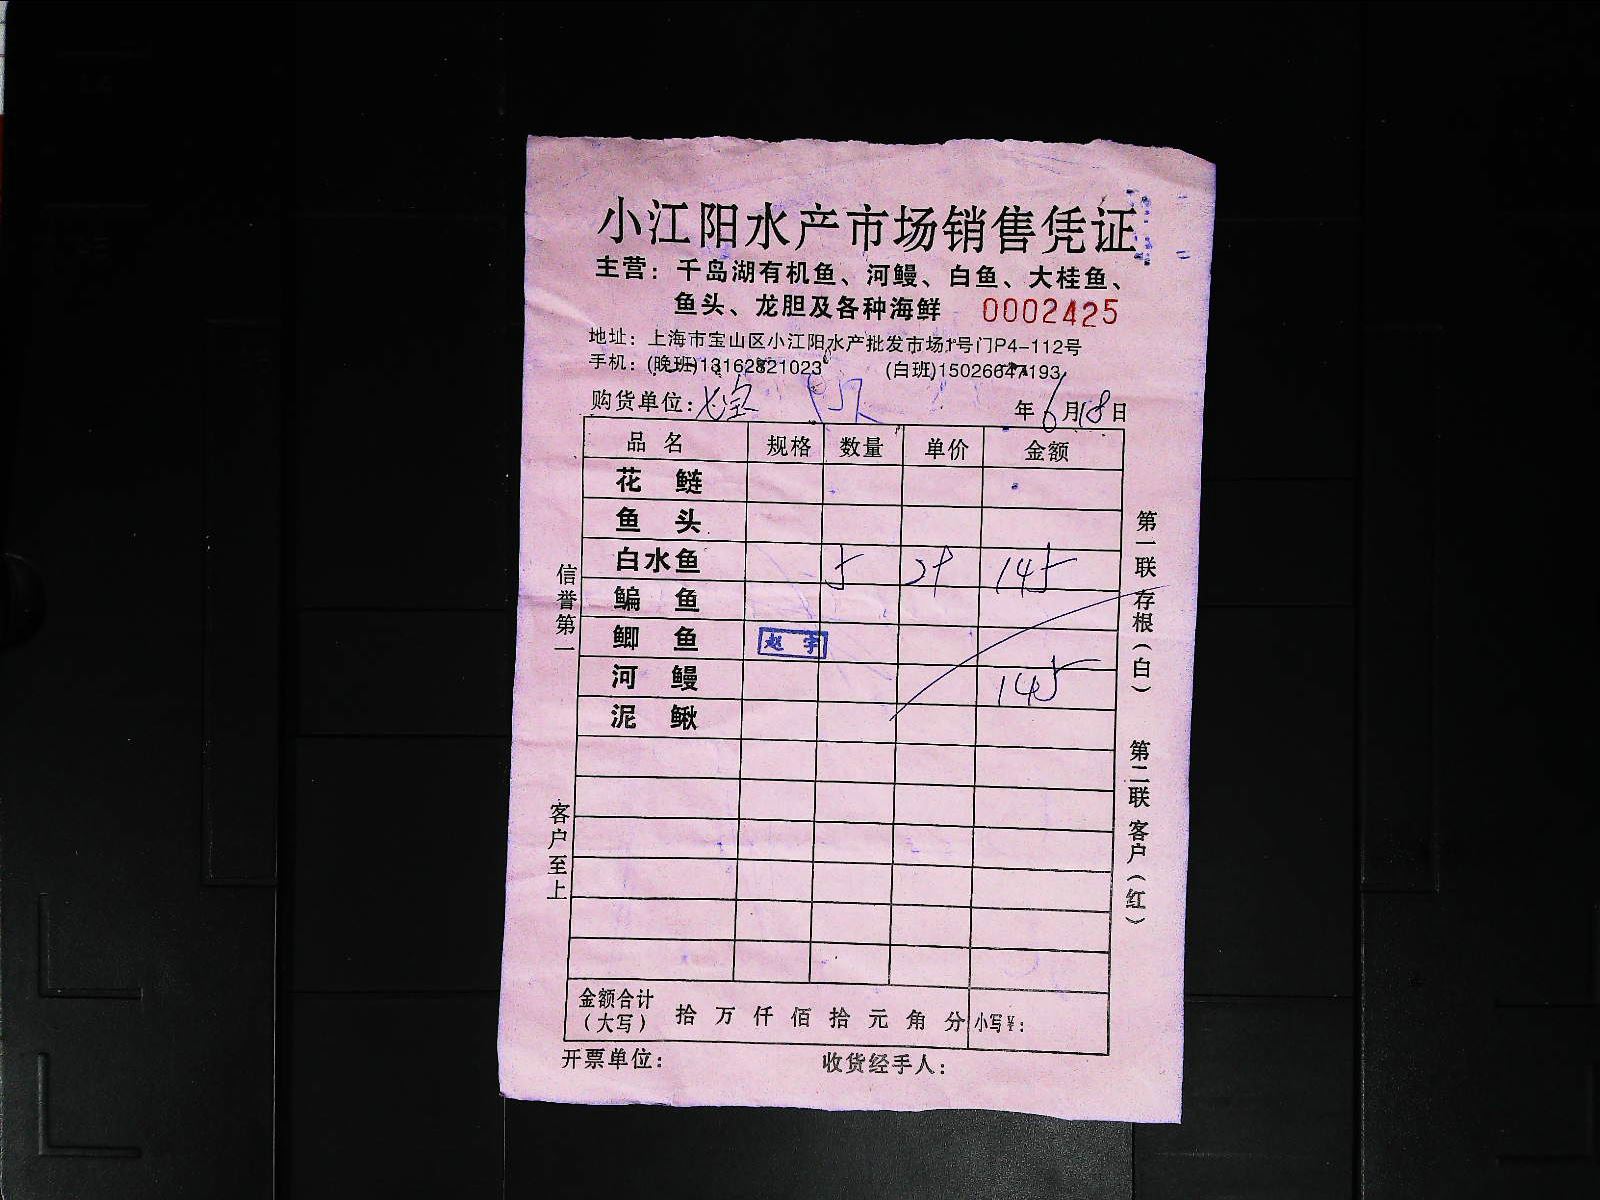 小江阳水产市场销售凭证
主营：千岛湖有机鱼、河鳗、白鱼、大桂鱼、
鱼头、龙胆及各种海鲜 0002425
地址：上海市宝山区小江阳水产批发市场1号门P4-112号
手机：(晚班)13162821023 (白班)15026647193
购货单位： 年6月18日
品名 规格 数量 单价 金额
花鲢
鱼头
白水鱼 5 29 145
鳊鱼
鲫鱼 赵宇
河鳗 145
泥鳅
金额合计
（大写） 拾万仟佰拾元角分 小写￥：
开票单位： 收货经手人：
信誉第一
客户至上
第一联 存根（白）
第二联 客户（红）